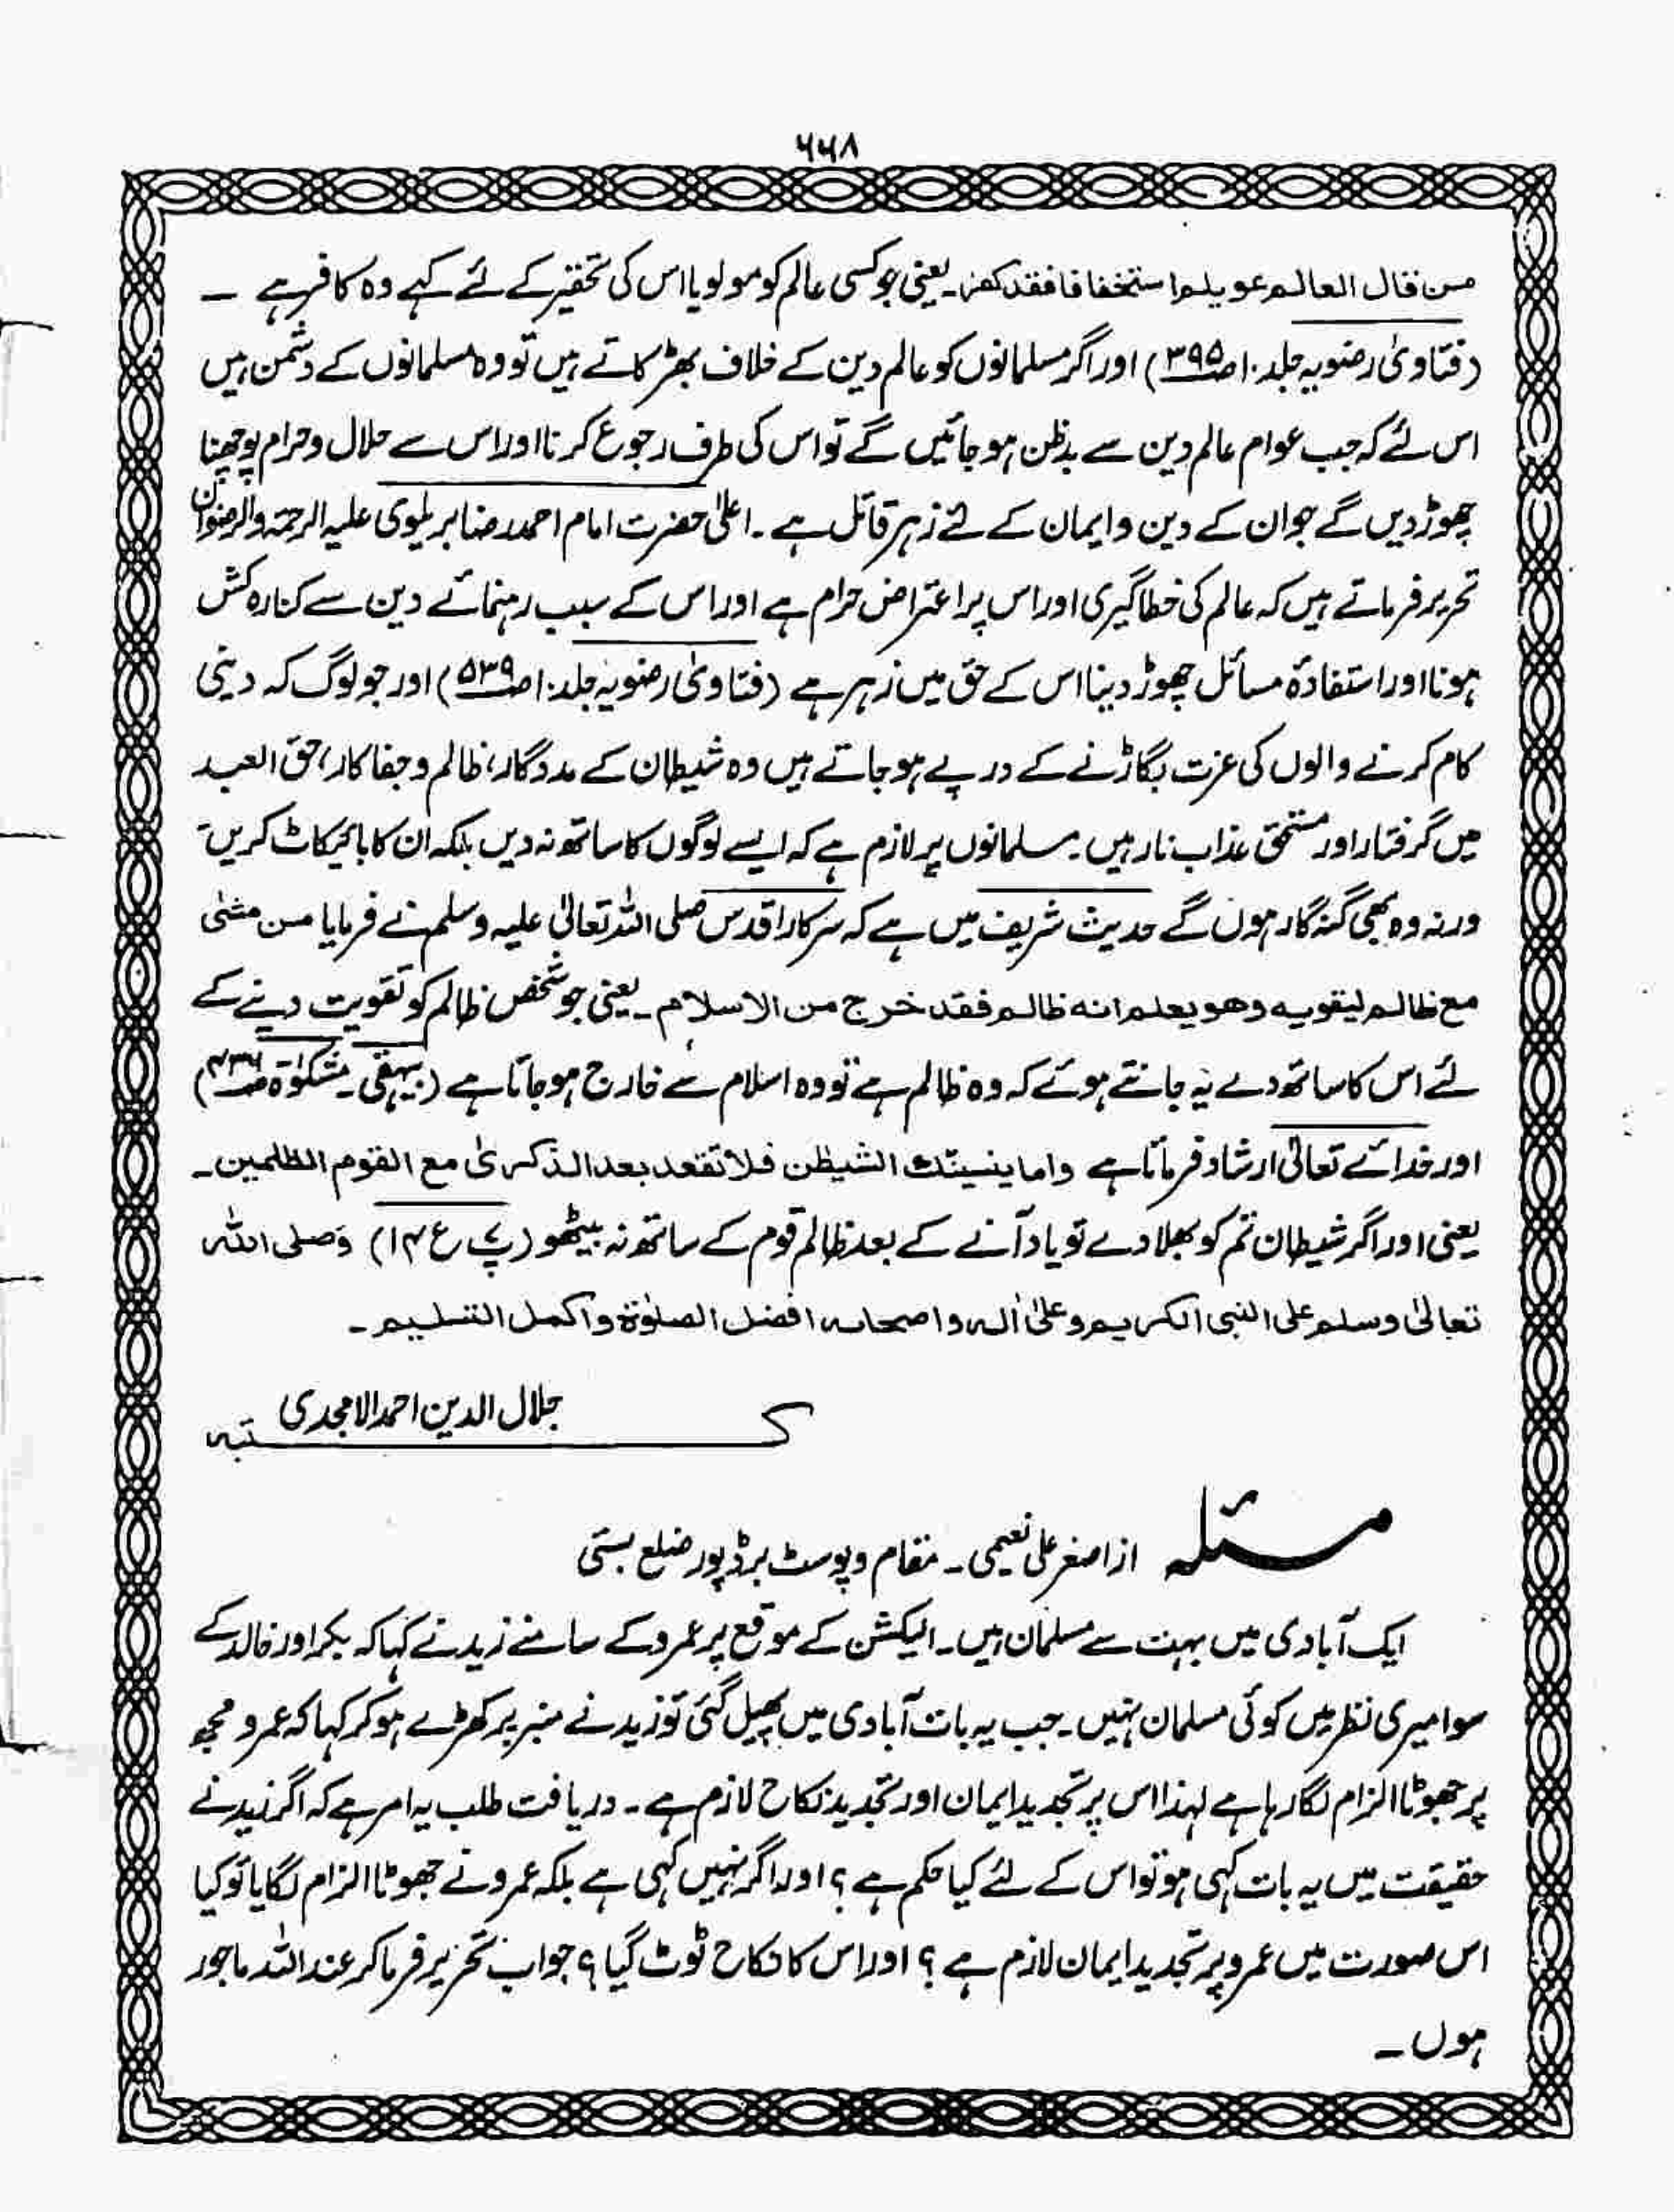 ۶۶۸
من قال العالم عویلم استخفافا فقد کفر۔ یعنی جو کسی عالم کو مولویا اس کی تحقیر کے لئے کہے وہ کافر ہے ۔
(فتاویٰ رضویہ جلد ۱۰ ص۳۹۵) اور اگر مسلمانوں کو عالم دین کے خلاف بھڑکاتے ہیں تو وہ مسلمانوں کے دشمن ہیں
اس لئے کہ جب عوام عالم دین سے بدظن ہو جائیں گے تو اس کی طرف رجوع کرنا اور اس سے حلال و حرام پوچھنا
چھوڑ دیں گے جو ان کے دین و ایمان کے لئے زہر قاتل ہے ۔ اعلیٰ حضرت امام احمد رضا بریلوی علیہ الرحمۃ والرضوان
تحریر فرماتے ہیں کہ عالم کی خطا گیری اور اس پر اعتراض حرام ہے اور اس کے سبب رہنمائے دین سے کنارہ کش
ہونا اور استفادۂ مسائل چھوڑ دینا اس کے حق میں زہر ہے (فتاویٰ رضویہ جلد ۱۰ ص۵۳۹) اور جو لوگ کہ دینی
کام کرنے والوں کی عزت بگاڑنے کے درپے ہو جاتے ہیں وہ شیطان کے مددگار، ظالم و جفاکار، حق العبد
میں گرفتار اور مستحق عذاب نار ہیں۔ مسلمانوں پر لازم ہے کہ ایسے لوگوں کا ساتھ نہ دیں بلکہ ان کا بائیکاٹ کریں
ورنہ وہ بھی گنہگار ہوں گے حدیث شریف میں ہے کہ سرکار اقدس صلی اللہ تعالیٰ علیہ وسلم نے فرمایا من مشیٰ
مع ظالم لیقویہ وھو یعلم انہ ظالم فقد خرج من الاسلام۔ یعنی جو شخص ظالم کو تقویت دینے کے
لئے اس کا ساتھ دے یہ جانتے ہوئے کہ وہ ظالم ہے تو وہ اسلام سے خارج ہو جاتا ہے (بیہقی۔ مشکوٰۃ ص۴۳۶)
اور خدائے تعالیٰ ارشاد فرماتا ہے واما ینسینک الشیطٰن فلا تقعد بعد الذکریٰ مع القوم الظلمین۔
یعنی اور اگر شیطان تم کو بھلا دے تو یاد آنے کے بعد ظالم قوم کے ساتھ نہ بیٹھو (پ۷ ع ۱۴) وصلی اللہ
تعالیٰ وسلم علی النبی الکریم وعلیٰ اٰلہ واصحابہ افضل الصلوٰۃ واکمل التسلیم۔
جلال الدین احمد الامجدی
کتبہ
مسئلہ از اصغر علی نعیمی۔ مقام و پوسٹ برڈپور ضلع بستی
ایک آبادی میں بہت سے مسلمان ہیں۔ الیکشن کے موقع پر عمرو کے سامنے زید نے کہا کہ بکر اور خالد کے
سوا میری نظر میں کوئی مسلمان نہیں۔ جب یہ بات آبادی میں پھیل گئی تو زید نے منبر پر کھڑے ہو کر کہا کہ عمرو مجھ
پر جھوٹا الزام لگا رہا ہے لہذا اس پر تجدید ایمان اور تجدید نکاح لازم ہے ۔ دریافت طلب یہ امر ہے کہ اگر زید نے
حقیقت میں یہ بات کہی ہو تو اس کے لئے کیا حکم ہے ؟ اور اگر نہیں کہی ہے بلکہ عمرو نے جھوٹا الزام لگایا تو کیا
اس صورت میں عمرو پر تجدید ایمان لازم ہے ؟ اور اس کا نکاح ٹوٹ گیا ؟ جواب تحریر فرما کر عند اللہ ماجور
ہوں ۔